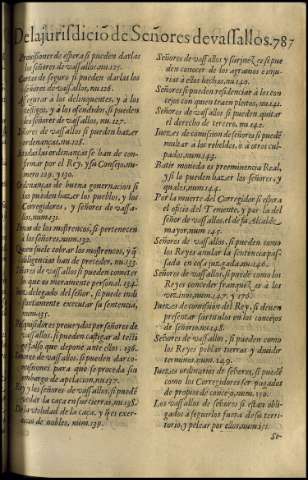 De la jurisdiciõ de Señores de vassallos. 787
Provisiones de espera si pueden darlas
los señores de vassallos, nu. 127.
Cartas de seguro si pueden darlas los
señores de vassallos, nu. 126.
Assegurar à los delinquentes, y à los
testigos, y à los ofendidos, si pueden
los señores de vassallos, num.
Señores de vassallos si pueden hazer
ordenanças, nu. 128.
Todas las ordenanças se han de con-
firmar por el Rey, y su Consejo, nu-
mero 129. y 130.
Ordenanças de buena governacion si
las pueden hazer los pueblos, y los
Corregidores, y señores de vassa-
llos, num. 131.
Penas de los mostrencos, si pertenecen
à los señores, nu. 132.
Quien suele cobrar los mostrencos, y q̃
diligencias han de preceder, nu. 133.
Señores de vassallos si pueden cometer
lo que es meramente personal. 134.
Un delegado del señor, si puede indi-
stintamente executar su sentencia,
num. 135.
Pesquisidores proveydos por señores de
vassallos, si pueden castigar al testi-
go falso que depone ante ellos. 136.
Señores de vassallos, si pueden dar co-
missiones para que se proceda sin
embargo de apelacion, nu. 137.
Rey y los señores de vassallos, si puedẽ
vedar la caça en sus tierras, nu. 138.
De la utilidad de la caça, y si es exer-
cicio de nobles, num. 139.
Señores de vassallos y si juezes es si pue-
den conocer de los agravios e inju-
rias a ellos hechas, nu. 140.
Señores si pueden residenciar à los con-
cejos con quien traen pleytos, nu. 141.
Señores de vassallos, si pueden quitar
el derecho de tercero. nu. 142.
Juezes de comission de señores si puedẽ
multar a los rebeldes, ò à otros cul-
pados, num. 143.
Batir moneda es preeminencia Real,
y si lo pueden hazer los señores, y
quales, num. 144.
Por la muerte del Corregidor si espira
el oficio del Teniente, y por la del
señor de vassallos, el de su Alcalde
mayor. num. 145.
Señores de vassallos, si pueden como
los Reyes anular la sentencia pas-
sada en cosa juzgada. nu. 146.
Señores de vassallos, si puedẽ como los
Reyes conceder franquezas a los
vezinos, num. 147. y 170.
Juezes de comission del Rey, si deven
presentar sus titulos en los concejos
de señorio, nu. 148.
Señores de vassallos, si pueden como
los Reyes poblar tierras y dividir
termino, num. 149.
Juezes ordinarios de señores, si pueden
como los Corregidores ser pagados
de propios de concejo, num. 150.
Los vassallos de señores si estàn obli-
gados à seguirlos fuera de su terri-
torio, y pelear por ellos, num. 151.
Se-